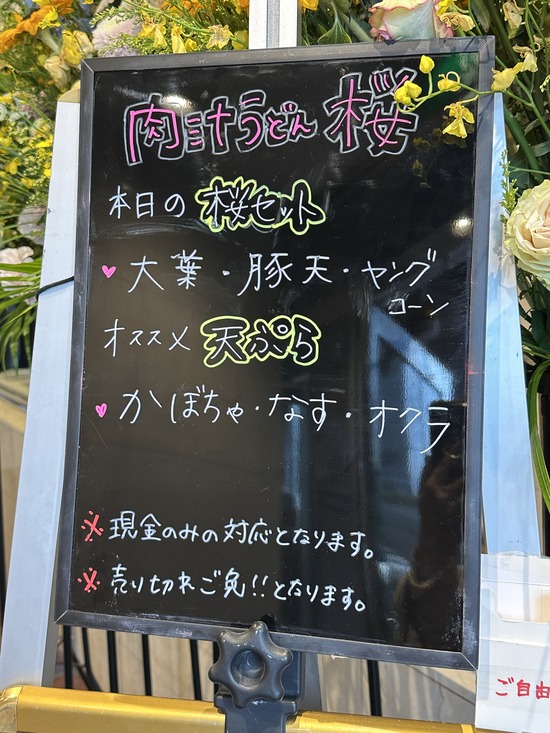 肉汁うどん 桜
本日の 桜セット
♥ 大葉・豚天・ヤング
コーン
オススメ 天ぷら
♥ かぼちゃ・なす・オクラ
※ 現金のみの対応となります。
※ 売り切れご免!!となります。
ご自由